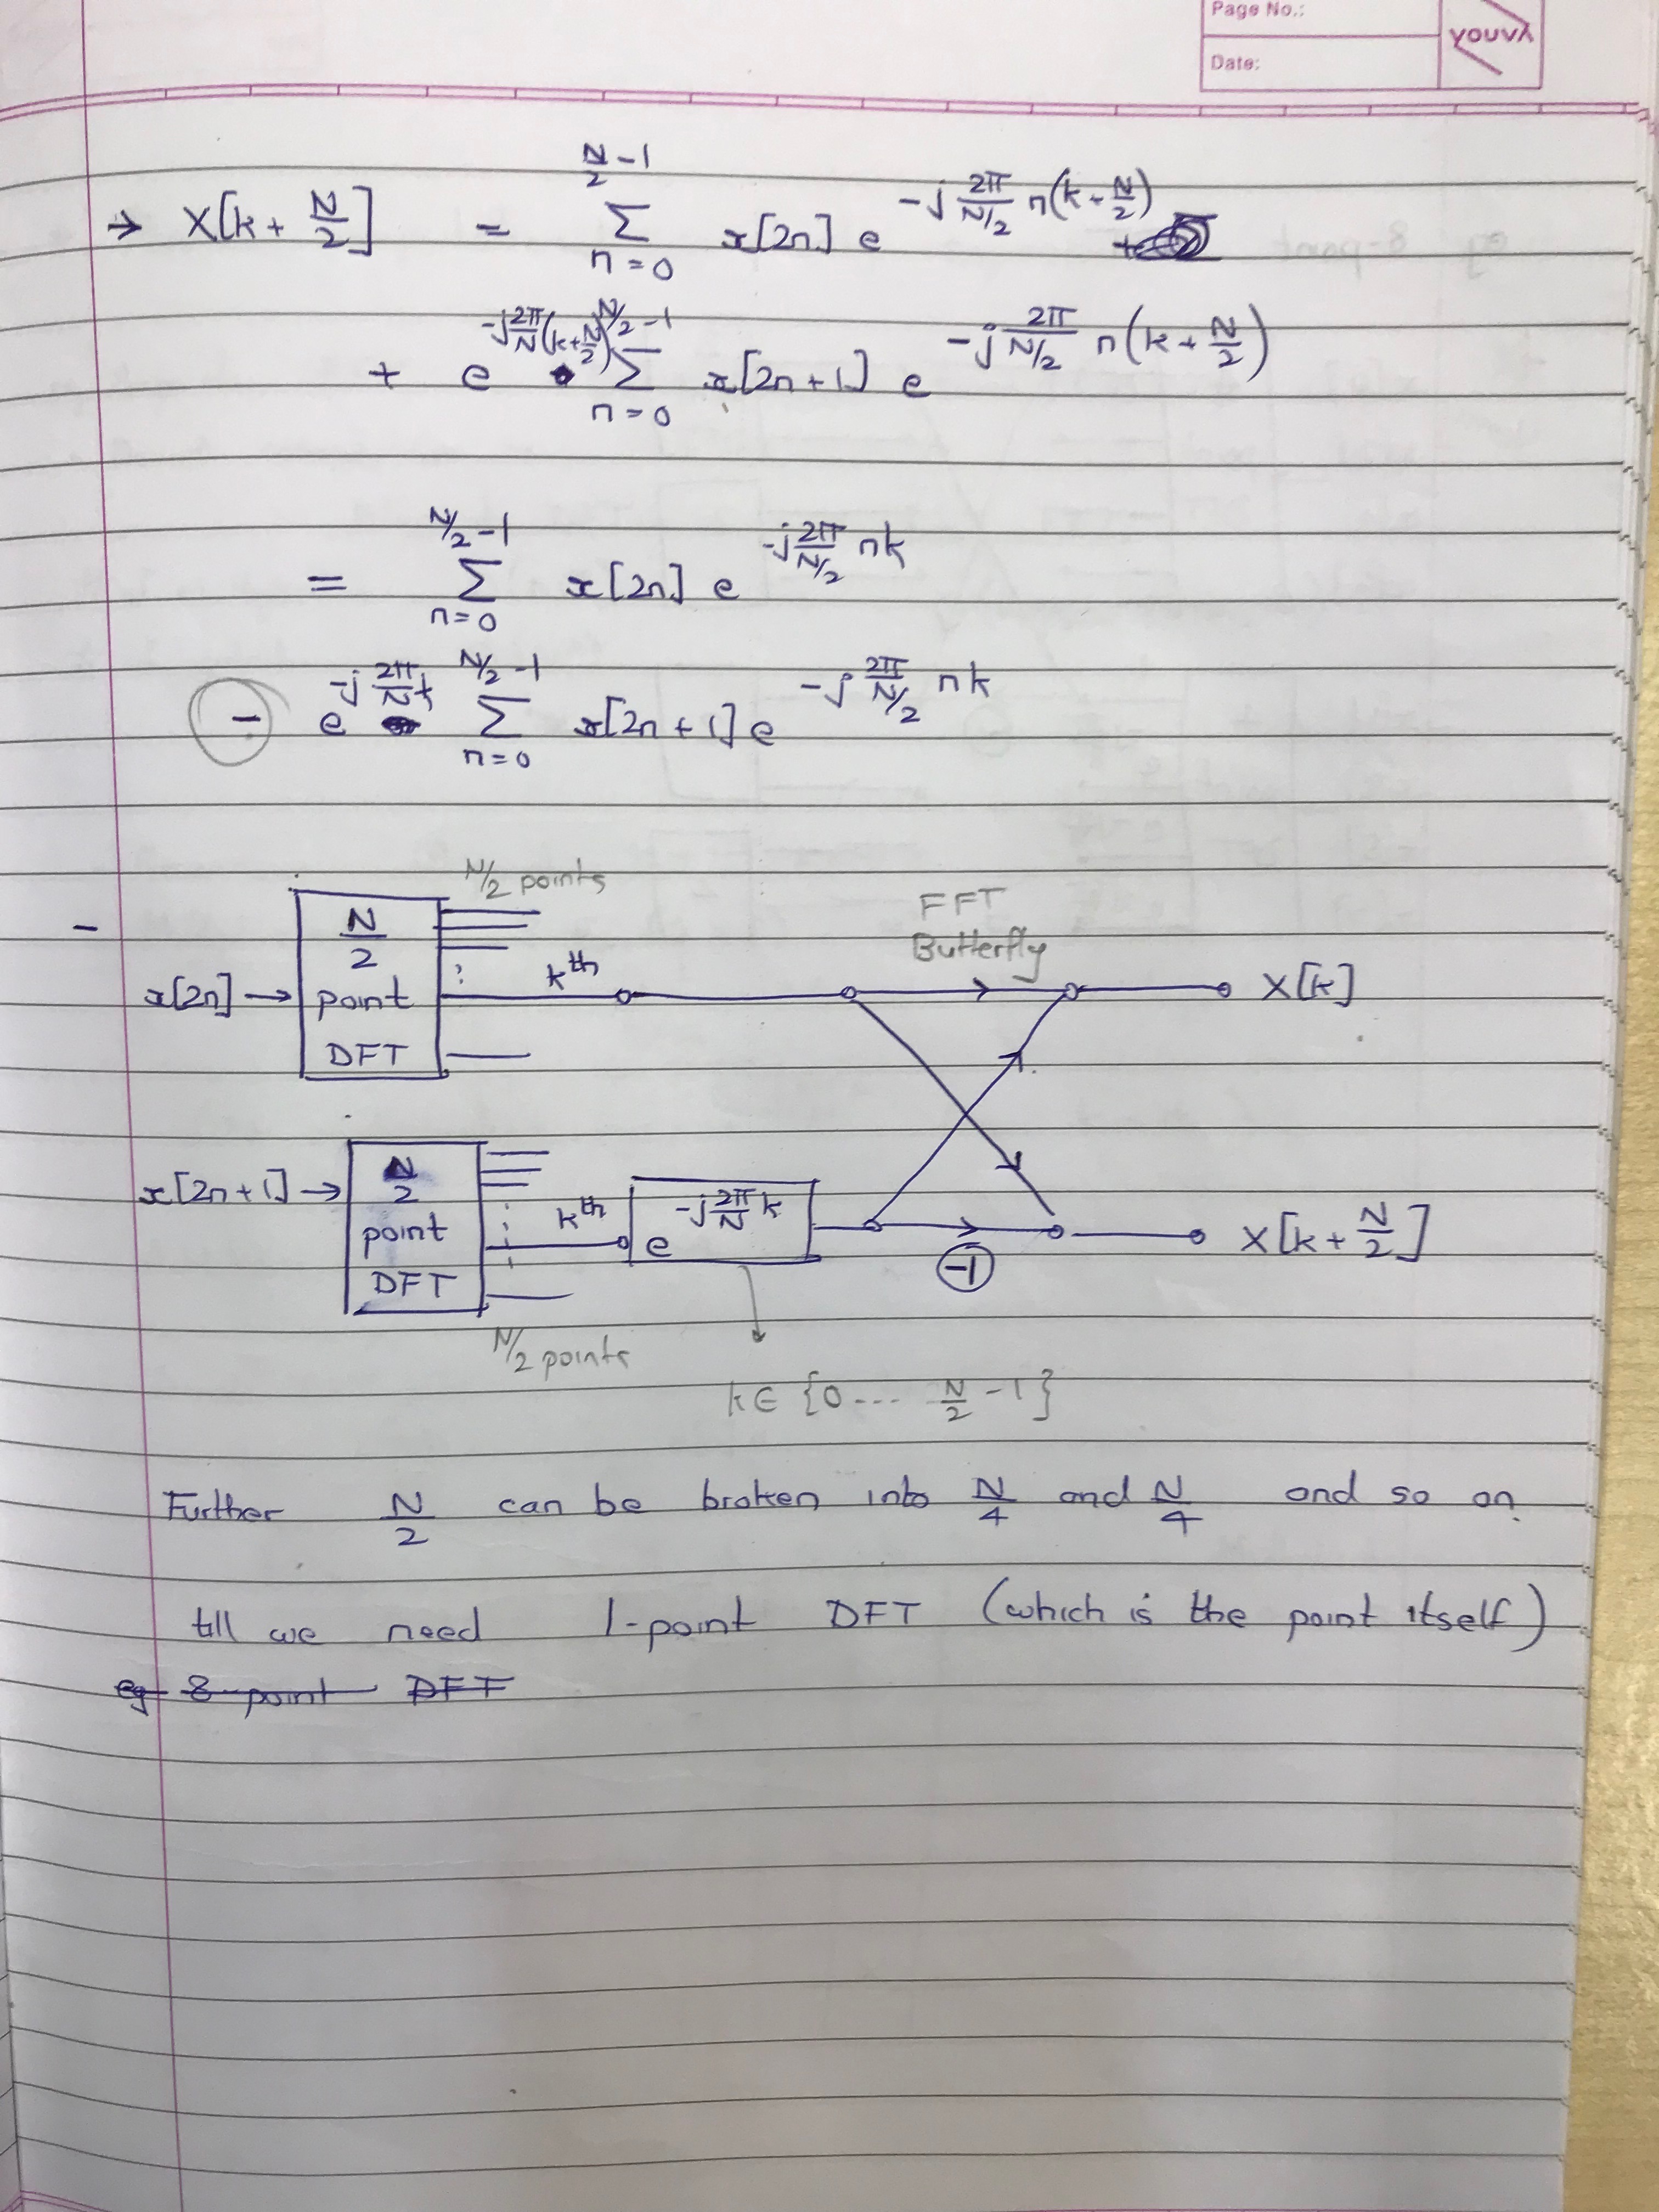 Page No.:
Date:
youva
→ X[k + N/2] = Σ_{n=0}^{N/2 - 1} x[2n] e^{-j 2π/(N/2) n(k + N/2)}
+ e^{-j 2π/N (k + N/2)} Σ_{n=0}^{N/2 - 1} x[2n+1] e^{-j 2π/(N/2) n(k + N/2)}
= Σ_{n=0}^{N/2 - 1} x[2n] e^{-j 2π/(N/2) nk}
- e^{-j 2π/N k} Σ_{n=0}^{N/2 - 1} x[2n+1] e^{-j 2π/(N/2) nk}
N/2 points
FFT
Butterfly
-
x[2n] → N/2 point DFT
kth
X[k]
x[2n+1] → N/2 point DFT
kth
e^{-j 2π/N k}
-1
X[k + N/2]
N/2 points
k ∈ {0 ... N/2 - 1}
Further N/2 can be broken into N/4 and N/4 and so on
till we need 1-point DFT (which is the point itself)
eg 8-point DFT